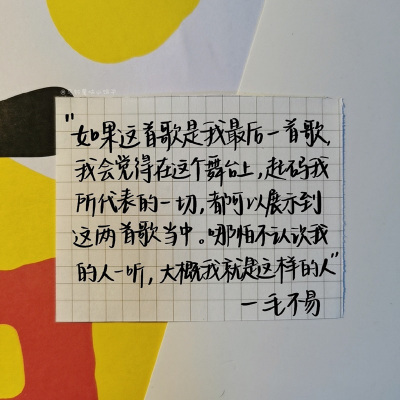 "如果这首歌是我最后一首歌,
我会觉得在这个舞台上,起码我
所代表的一切,都可以展示到
这两首歌当中。哪怕不认识我
的人一听,大概我就是这样的人"
—毛不易